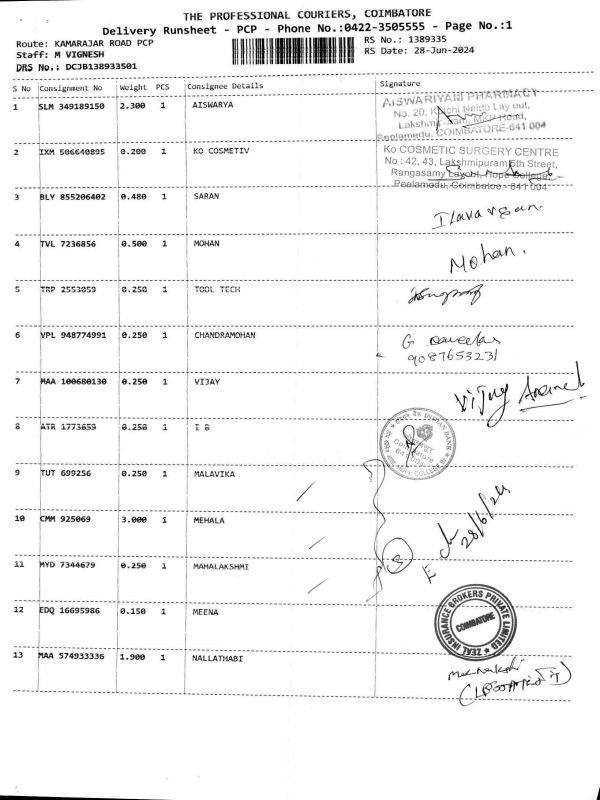 THE PROFESSIONAL COURIERS, COIMBATORE
Delivery Runsheet - PCP - Phone No.:0422-3505555 - Page No.:1
Route: KAMARAJAR ROAD PCP
RS No.: 1389335
Staff: M VIGNESH
RS Date: 28-Jun-2024
DRS No.: DCJB138933501
S No Consignment No Weight PCS Consignee Details Signature
1 SLM 349189150 2.300 1 AISWARYA
AISWARIYAM PHARMACY
No. 20, Naidu Lay out,
Road,
Peelamedu, COIMBATORE-641 004
2 IXM 506640895 0.200 1 KO COSMETIV
Ko COSMETIC SURGERY CENTRE
No : 42, 43, Lakshmipuram 5th Street,
Rangasamy Layout, Hope College,
Peelamedu, Coimbatoe - 641 004
3 BLY 855206402 0.480 1 SARAN
Ilavarasan.
4 TVL 7236856 0.500 1 MOHAN
Mohan.
5 TRP 2553059 0.250 1 TOOL TECH
6 VPL 948774991 0.250 1 CHANDRAMOHAN
G
9087653231
7 MAA 100680130 0.250 1 VIJAY
Vijay Anand
8 ATR 1773659 0.250 1 I B
INDIAN BANK
Coimbatore
9 TUT 699256 0.250 1 MALAVIKA
10 CMM 925069 3.000 1 MEHALA
28/6/24
11 MYD 7344679 0.250 1 MAHALAKSHMI
S
12 EDQ 16695986 0.150 1 MEENA
ZEAL INSURANCE BROKERS PRIVATE LIMITED
COIMBATORE
13 MAA 574933336 1.900 1 NALLATHABI